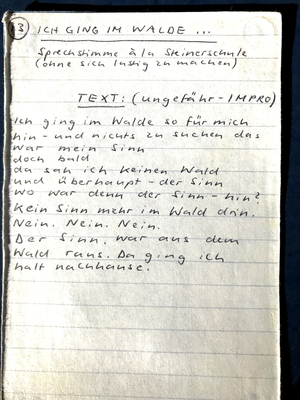 3 ICH GING IM WALDE ...
Sprechstimme à la Steinerschule
(ohne sich lustig zu machen)
TEXT: (ungefähr-IMPRO)
Ich ging im Walde so für mich
hin - und nichts zu suchen das
war mein Sinn
doch bald
da sah ich keinen Wald
und überhaupt - der Sinn
wo war denn der Sinn - hin?
Kein Sinn mehr im Wald drin.
Nein. Nein. Nein.
Der Sinn, war aus dem
Wald raus. Da ging ich
halt nachhause.